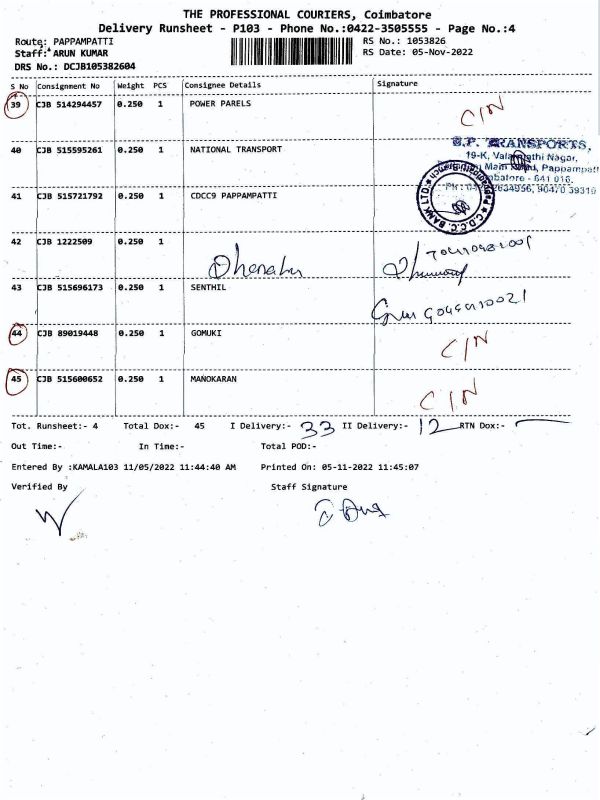 THE PROFESSIONAL COURIERS, Coimbatore
Delivery Runsheet - P103 - Phone No.:0422-3505555 - Page No.:4
Route: PAPPAMPATTI RS No.: 1053826
Staff: ARUN KUMAR RS Date: 05-Nov-2022
DRS No.: DCJB105382604
S No Consignment No Weight PCS Consignee Details Signature
39 CJB 514294457 0.250 1 POWER PARELS C/N
40 CJB 515595261 0.250 1 NATIONAL TRANSPORT
S.P. TRANSPORTS,
19-K, Nagar,
Main Road, Pappampatti
641 016.
41 CJB 515721792 0.250 1 CDCC9 PAPPAMPATTI
C.D.C.C. BANK LTD.
42 CJB 1222509 0.250 1
Dhanabu
43 CJB 515696173 0.250 1 SENTHIL
44 CJB 89019448 0.250 1 GOMUKI C/N
45 CJB 515600652 0.250 1 MANOKARAN C/N
Tot. Runsheet:- 4 Total Dox:- 45 I Delivery:- 33 II Delivery:- 12 RTN Dox:-
Out Time:- In Time:- Total POD:-
Entered By :KAMALA103 11/05/2022 11:44:40 AM Printed On: 05-11-2022 11:45:07
Verified By Staff Signature